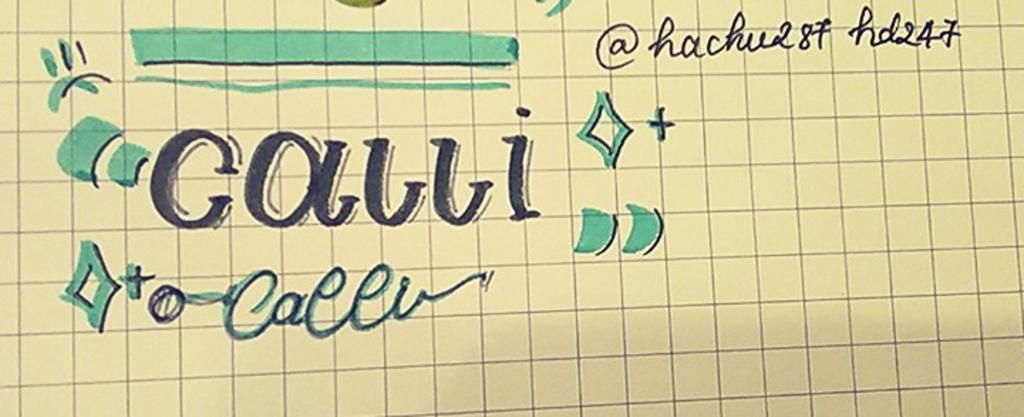 @hachu287 hd247
“calli
”
Calli